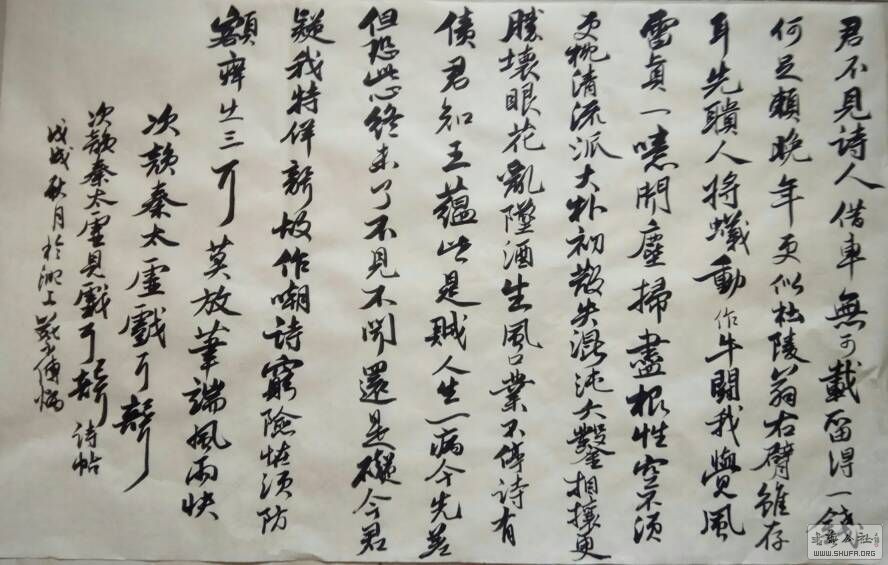 君不見詩人借車無可載留得一錢
何足賴晚年更似杜陵翁右臂雖存
耳先聵人將蟻動作牛鬪我覺風
雷真一噫聞塵掃盡根性空不須
更枕清流派大朴初散失混沌六鑿相攘更
勝壞眼花亂墜酒生風口業不停詩有
債君知五蘊皆是賊人生一病今先差
但恐此心終未了不見不聞還是礙今君
疑我特佯聾故作嘲詩窮險怪須防
額痒出三耳莫放筆端風雨快
次韻秦太虛戲耳聾
次韻秦太虛見戲耳聾詩帖
戊戌秋月於上
WWW.SHUFA.ORG